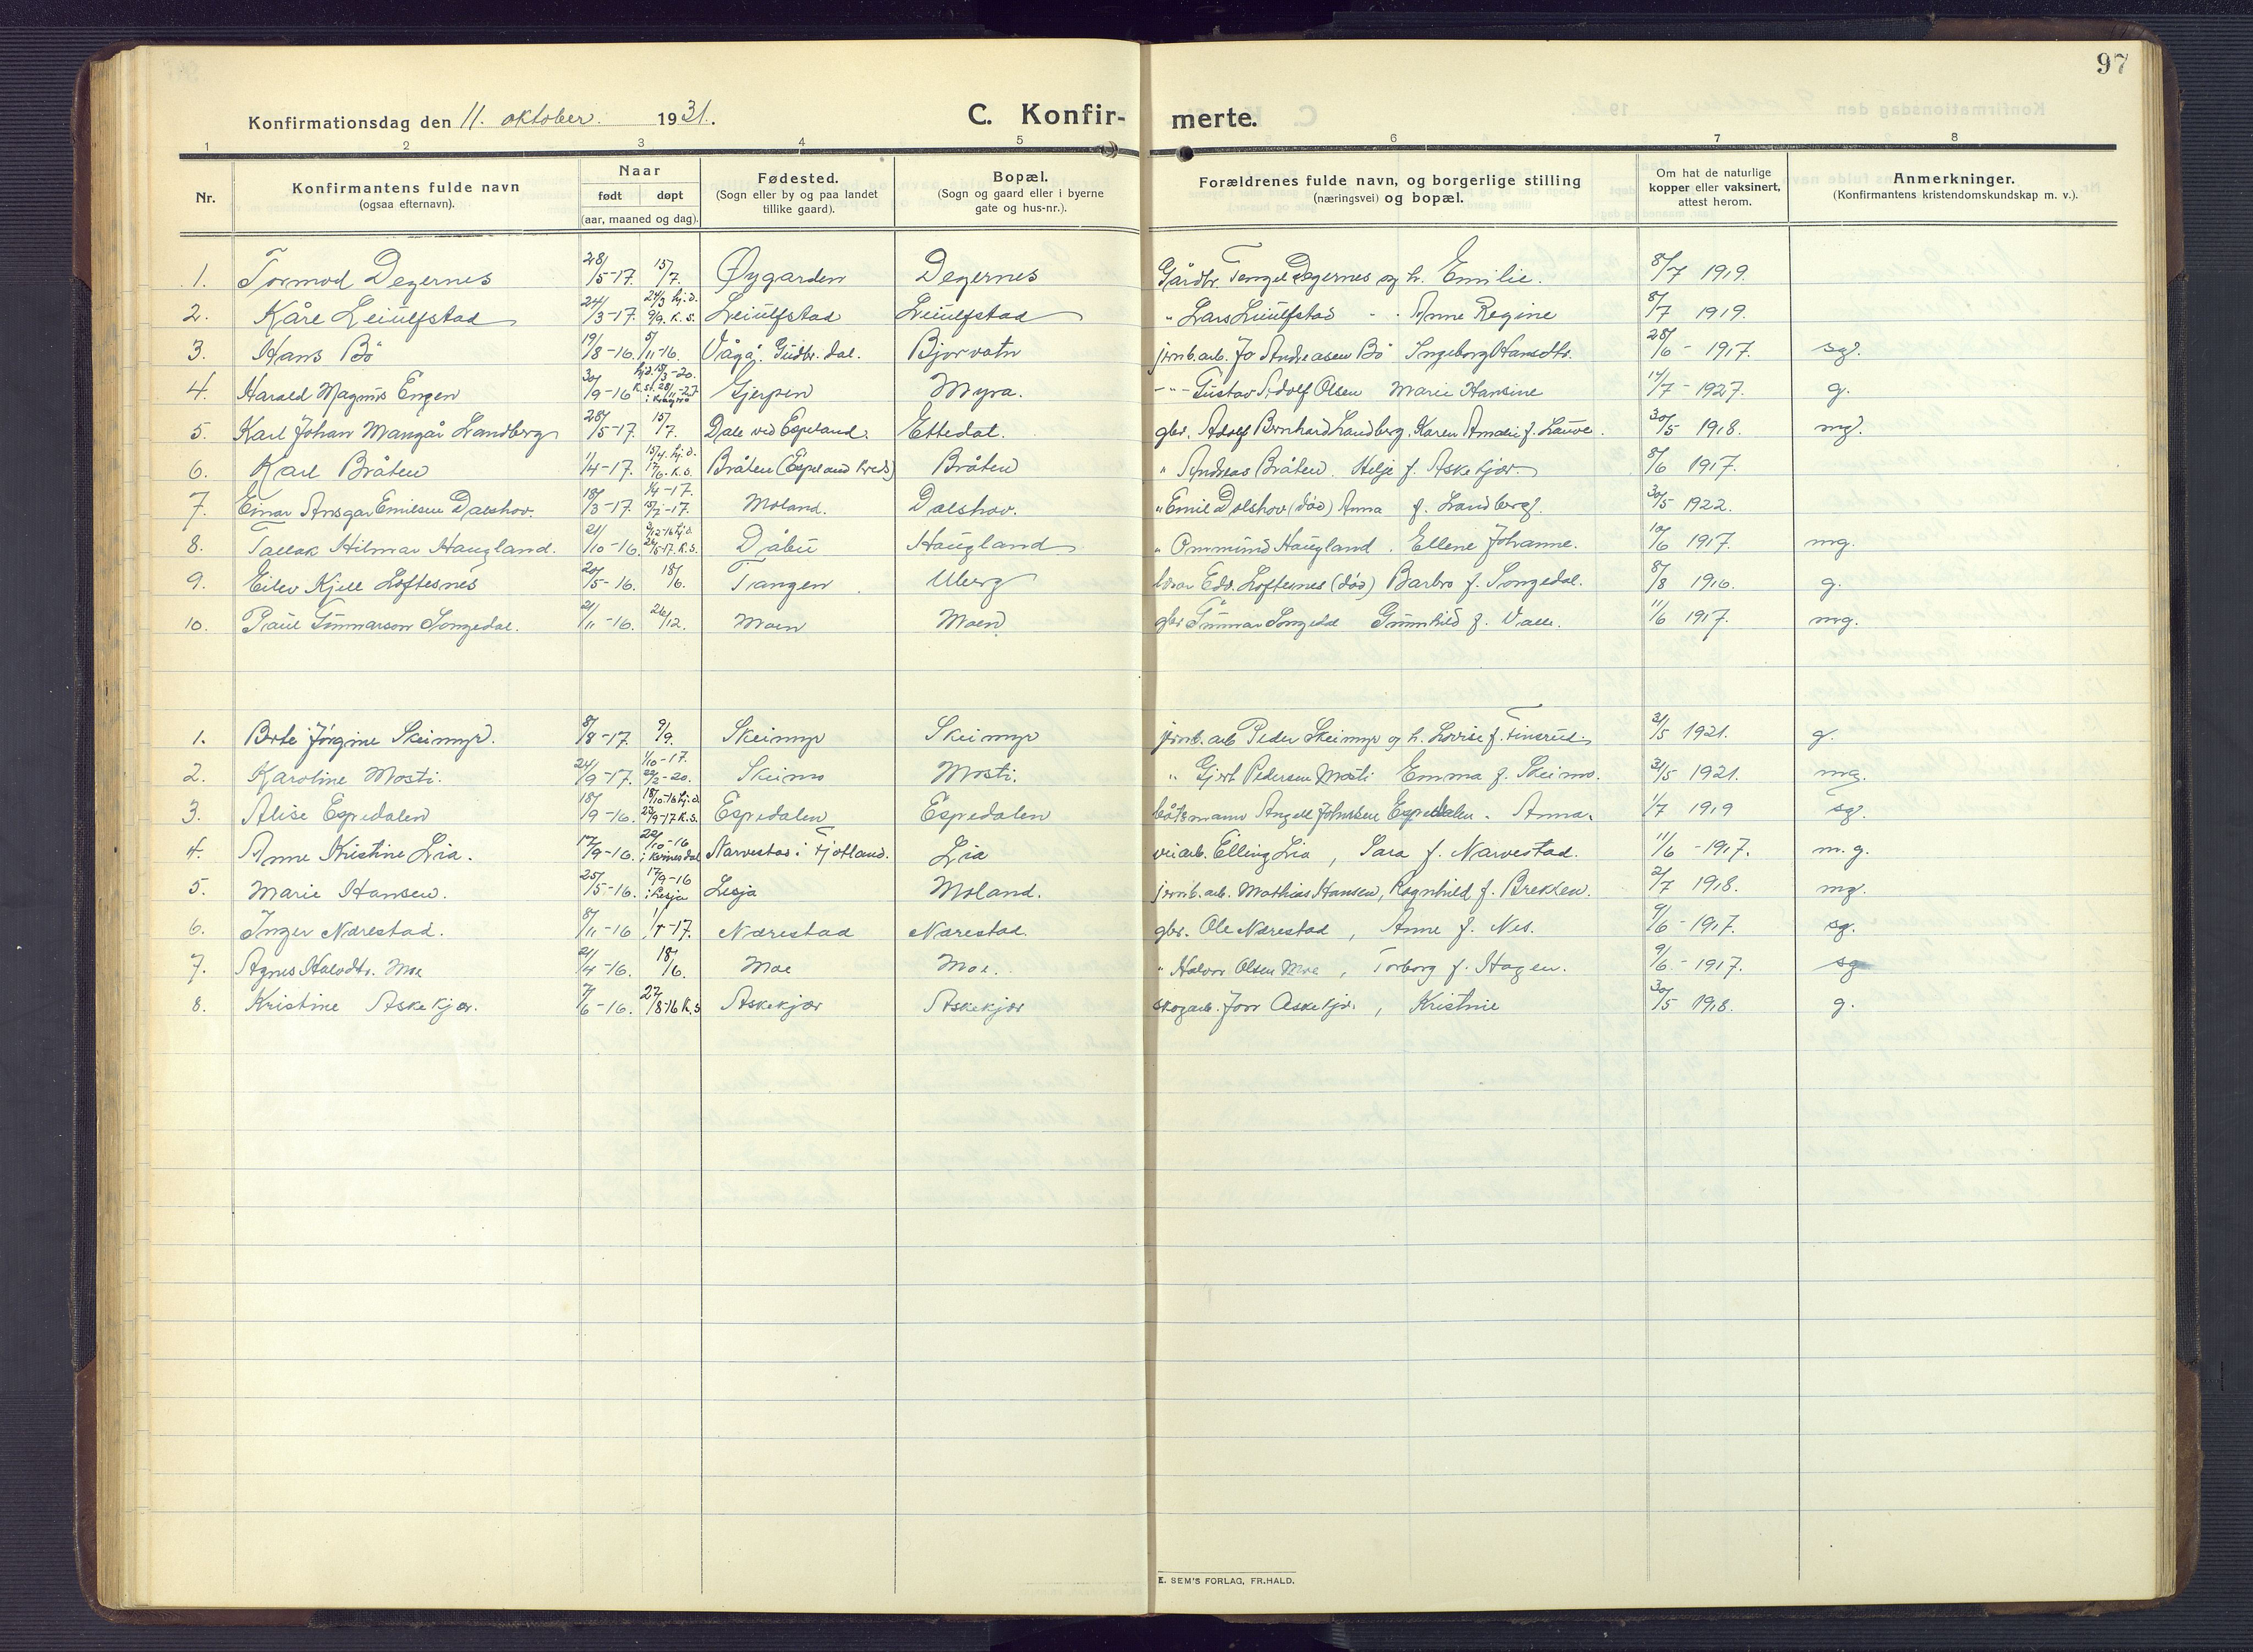 97
Konfirmationsdag den 11. oktober. 1931. C. Konfir- merte.
1 2 3 4 5 6 7 8
Nr. Konfirmantens fulde navn (ogsaa efternavn). Naar født døpt (aar, maaned og dag). Fødested. (Sogn eller by og paa landet tillike gaard). Bopæl. (Sogn og gaard eller i byerne gate og hus-nr.). Forældrenes fulde navn, og borgerlige stilling (næringsvei) og bopæl. Om hat de naturlige kopper eller vaksinert, attest herom. Anmerkninger. (Konfirmantens kristendomskundskap m. v.).
1. Tormod Degernes 28/5-17. 15/7. Øygarden Degernes Gårdbr. Tengel Degernes og h. Emilie. 8/7 1919.
2. Kåre Leiulfstad 24/3-17. 24/3 hj.d. 9/9. K. s. Leiulfstad Leiulfstad " Lars Leiulfstad - - Anne Regine 8/7 1919.
3. Hans Bö 19/8-16. 5/11-16. Vågå. Gudbr. dal. Bjorvatn jernb. arb. Jo Andreasen Bö Ingeborg Hansdtr. 28/6 - 1917. sg.
4. Harald Magnus Engen 30/9-16 hj.d. 18/3-20. K. st. 28/11-27 i Kragerø Gjerpen Myra. -"- Gustav Adolf Olsen Marie Hansine 14/7 - 1927. g.
5. Karl Johan Mangår Landberg 28/5-17. 15/7. Dale ved Espeland. Ettedal. gbr. Adolf Bernhard Landberg. Karen Amalie f. Lauve. 30/5 1918. mg.
6. Karl Bråten 1/4-17. 15/4. hj. d. 17/6. K. s. Bråten (Espeland Kreds) Bråten " Andreas Bråten. Helje f. Askekjær. 8/6 1917.
7. Einar Ansgar Emilsen Dalshov. 18/3-17 1/4-17. 15/7-17. Moland. Dalshov. " Emil Dalshov (død) Anna f. Landberg. 30/5 1922.
8. Tallak Hilmar Haugland. 21/10-16. 3/12-16 hj.d. 26/5-17. K. s. Dåbu Haugland " Ommund Haugland. Ellene Johanne. 10/6 1917. mg.
9. Eilev Kjell Loftesnes 20/5-16. 18/6. Tangen Uberg Edv. Loftesnes (død) Barbro f. Songedal. 8/8 1916. g.
10. Paul Gunnarson Songedal. 21/11-16. 26/12. Moen Moen gbr Gunnar Songedal Gunnhild f. Valle. 11/6 1917. mg.
1. Berte Jörgine Skeimyr. 8/8-17. 9/9. Skeimyr Skeimyr jernb. arb Peder Skeimyr og h. Lovise f. Finsrud. 31/5 1921. g.
2. Karoline Mosti. 24/9-17. 1/10-17. 22/2-20. Skeimo Mosti. " Gjert Pedersen Mosti Emma f. Skeimo. 31/5 1921. mg.
3. Alise Espedalen 18/9-16. 18/10-16 hj.d. 23/9-17 K.s. Espedalen Espedalen båtsmann Angell Johnsen Espedalen - Anna. 1/7 1919 sg.
4. Anne Kristine Lia. 17/9-16. 22/10-16 i Kvinesdal Narvestad i Fjotland. Lia veiarb. Elling Lia, Sara f. Narvestad. 11/6 - 1917. m. g.
5. Marie Hansen. 25/5-16. 17/9-16 i Lesja Lesja Moland. jernb. arb. Mathias Hansen, Ragnhild f. Brekken. 2/7 1918. mg.
6. Inger Nærestad. 8/11-16 1/1-17. Nærestad Nærestad. gbr. Ole Nærestad, Anne f. Nes. 9/6 - 1917. sg.
7. Agnes Halvdtr. Moe 21/4-16. 18/6. Moe Moe. " Halvor Olsen Moe, Torborg f. Hagen. 9/6 - 1917. sg
8. Kristine Askekjær. 7/6-16. 27/8-16 K. s Askekjær Askekjær skogarb. Askekjær, Kristine 30/5 1918. g.
E. SEM'S FORLAG, FR.HALD.